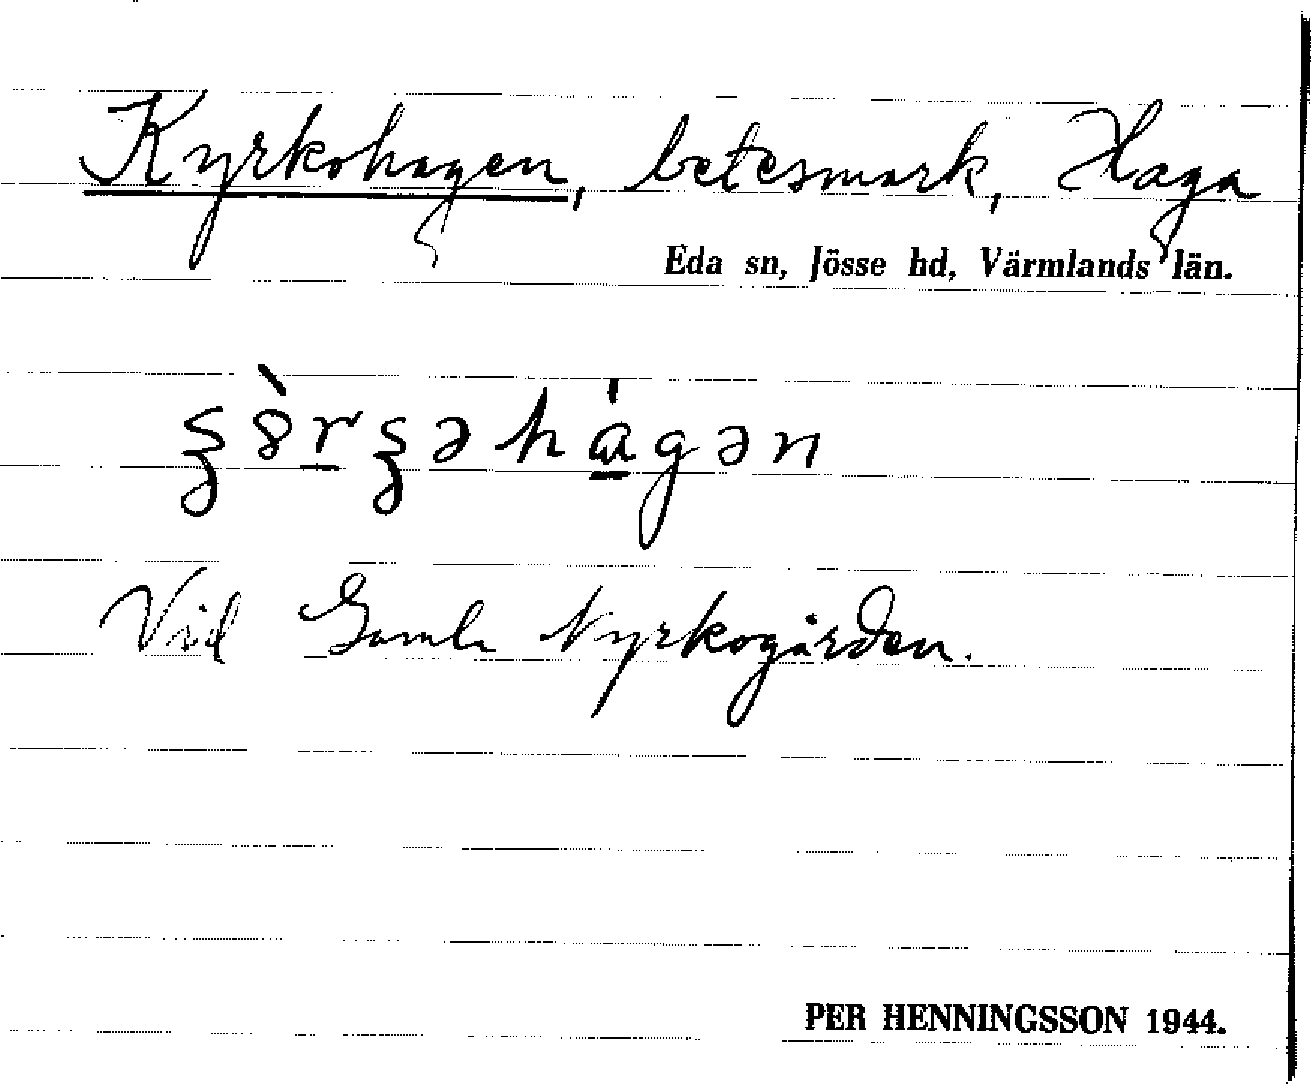 Kyrkohagen, betesmark, Haga
Eda sn, Jösse hd, Värmlands län.
Vid Gamla Kyrkogården.
PER HENNINGSSON 1944.